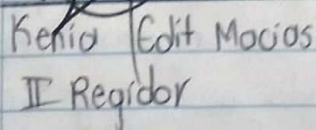 Kenia Edit Macias
II Regidor